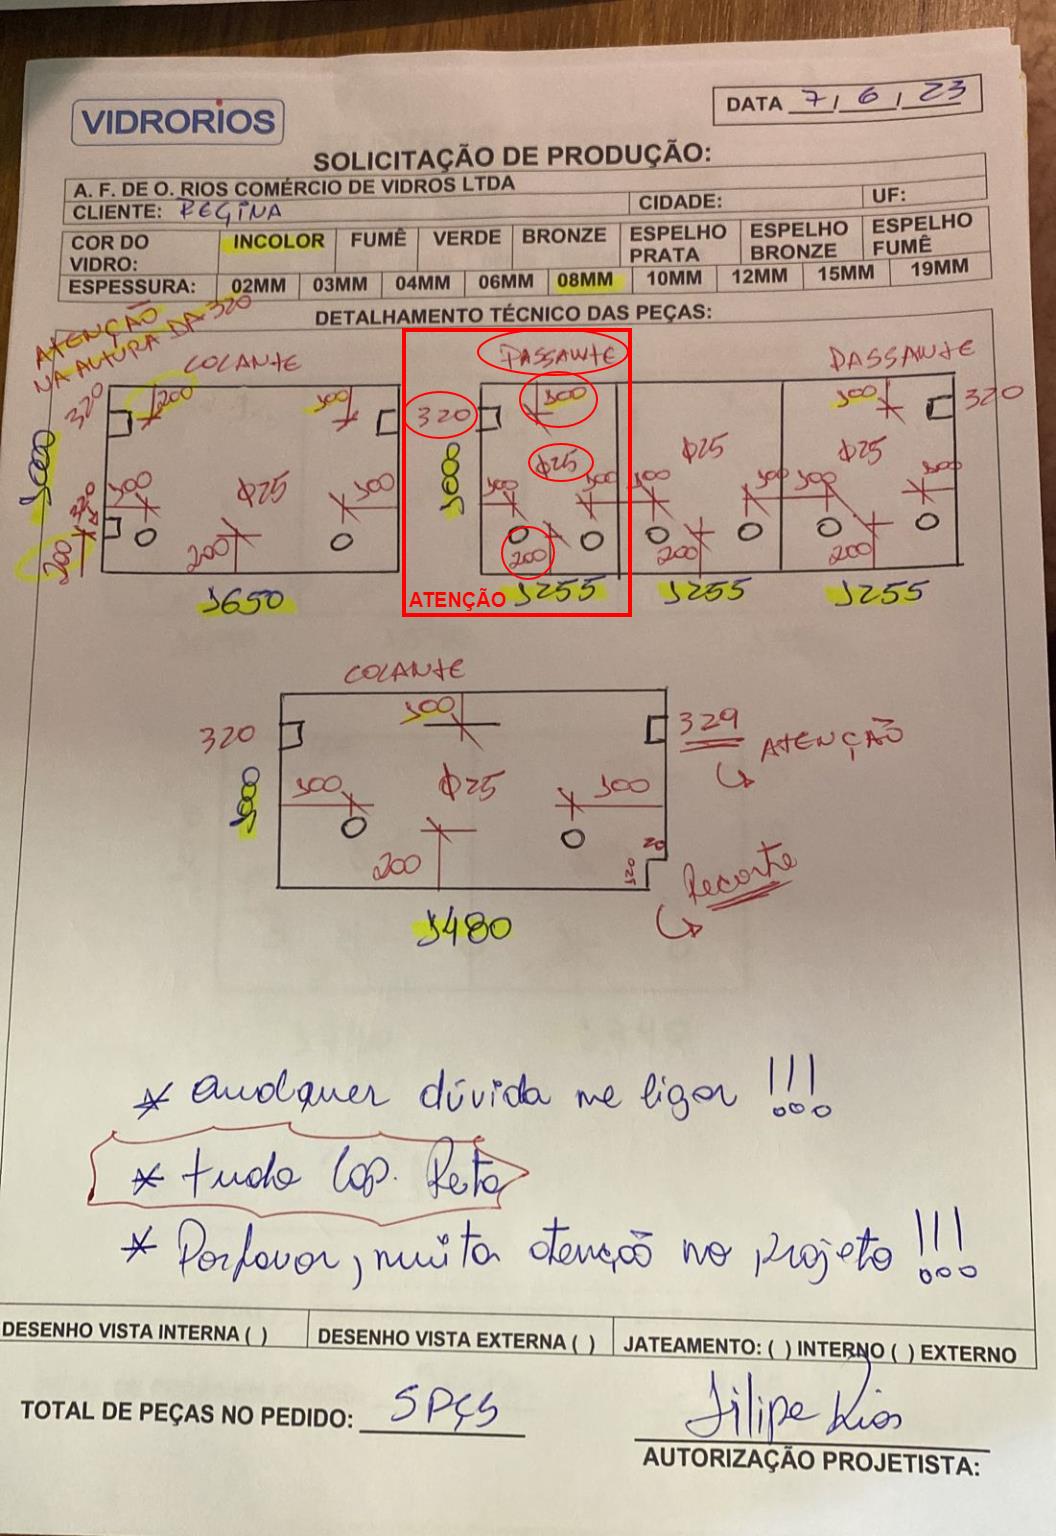 VIDRORIOS
DATA 7/6/23
SOLICITAÇÃO DE PRODUÇÃO:
A. F. DE O. RIOS COMÉRCIO DE VIDROS LTDA
CLIENTE: REGINA CIDADE: UF:
COR DO VIDRO: INCOLOR FUMÊ VERDE BRONZE ESPELHO PRATA ESPELHO BRONZE ESPELHO FUMÊ
ESPESSURA: 02MM 03MM 04MM 06MM 08MM 10MM 12MM 15MM 19MM
DETALHAMENTO TÉCNICO DAS PEÇAS:
ATENÇÃO
NA ALTURA DA 320
COLANTE PASSANTE PASSANTE
320 200 100 320 100 100 320
1000 1000
φ25 φ25 φ25 φ25
320 100 100 100 100 100 100 100 100
200 200 200 200
ATENÇÃO
1650 1255 1255 1255
COLANTE
320 100 329 ATENÇÃO
1000
100 φ25 100
200 20 Recorte
1480
* Qualquer dúvida me ligar !!!
* tudo Lap. Reta
* Por favor, muita atenção no projeto !!!
DESENHO VISTA INTERNA ( ) DESENHO VISTA EXTERNA ( ) JATEAMENTO: ( ) INTERNO ( ) EXTERNO
TOTAL DE PEÇAS NO PEDIDO: 5 PÇS Filipe Rios
AUTORIZAÇÃO PROJETISTA: